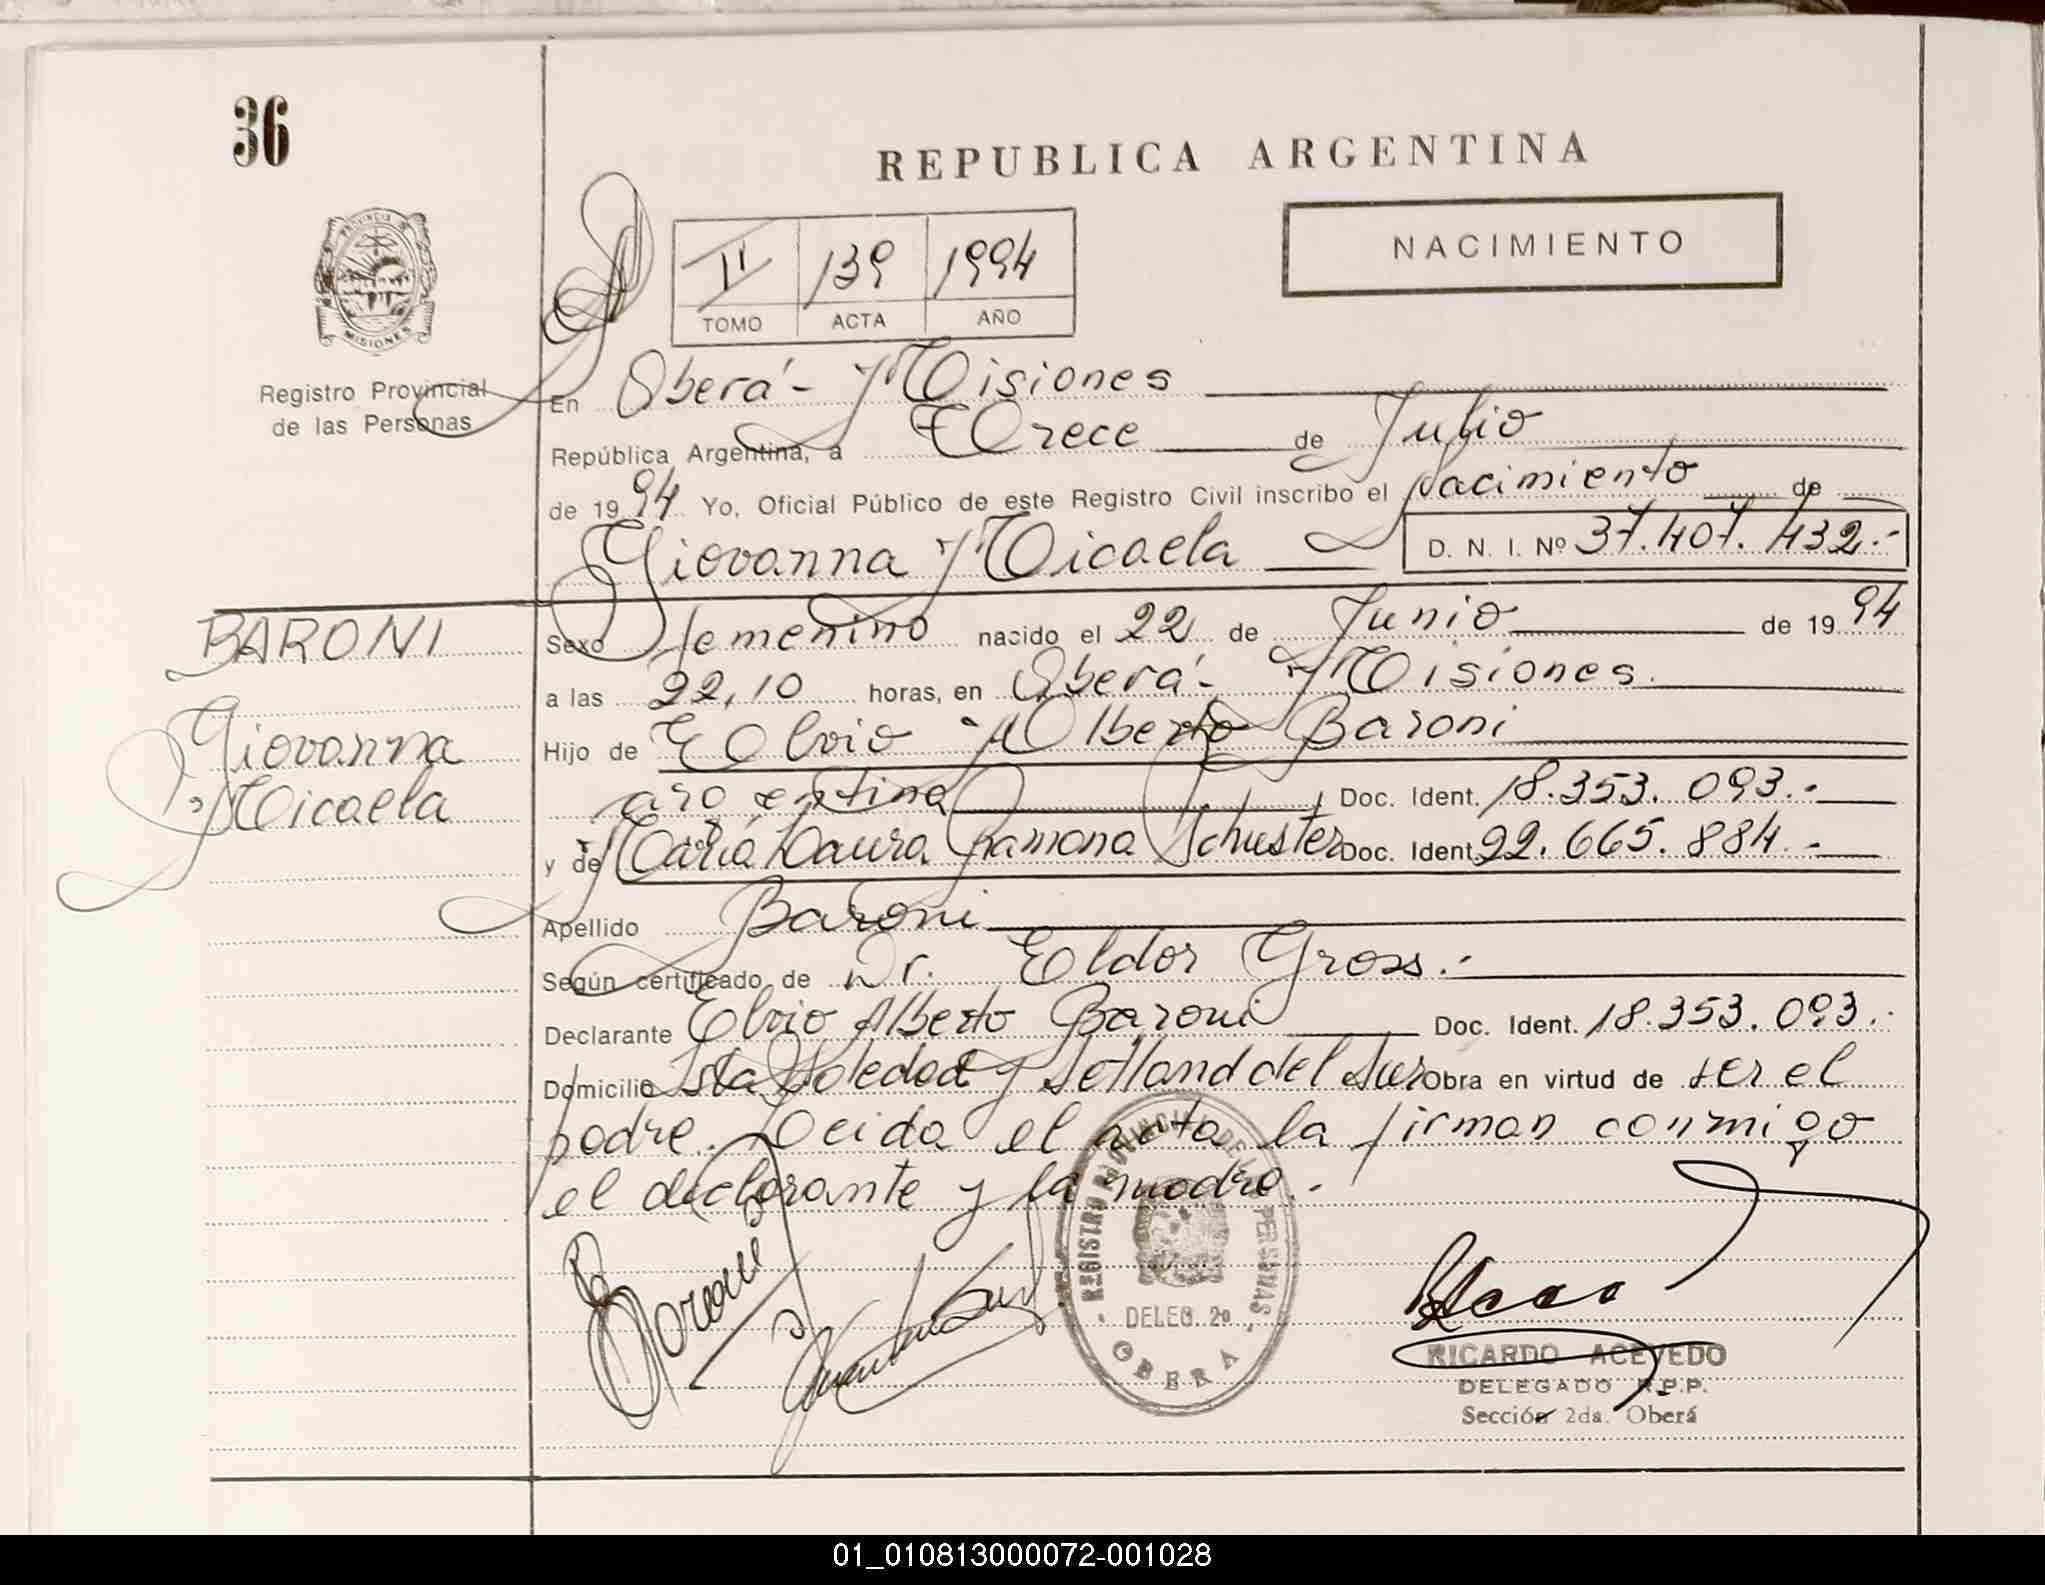 36
REPUBLICA ARGENTINA
NACIMIENTO
II 139 1994
TOMO ACTA AÑO
PROVINCIA DE MISIONES
Registro Provincial
de las Personas
En Oberá - Misiones
República Argentina, a Trece de Julio
de 1994 Yo, Oficial Público de este Registro Civil inscribo el Nacimiento de
Giovanna Micaela D. N. I. Nº 37.407.432.-
BARONI
Giovanna
Micaela
Sexo femenino nacido el 22 de Junio de 1994
a las 22,10 horas, en Oberá - Misiones.
Hijo de Elvio Alberto Baroni
argentina Doc. Ident. 18.353.093.-
y de María Laura Ramona Schuster Doc. Ident. 22.665.884.-
Apellido Baroni
Según certificado de Dr. Eldor Gross.-
Declarante Elvio Alberto Baroni Doc. Ident. 18.353.093.-
Domicilio Isla Soledad y del Sur Obra en virtud de ser el
padre. Leida el acta la firman conmigo
el declarante y la madre.-
Baroni
REGISTRO PROVINCIAL DE LAS PERSONAS
DELEG. 2a
OBERA
RICARDO ACEVEDO
DELEGADO R.P.P.
Sección 2da. Oberá
01_010813000072-001028